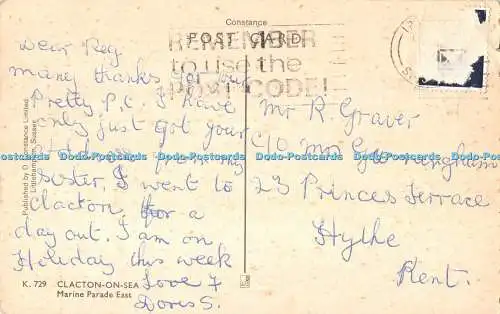 Constance
POST CARD
REMEMBER
to use the
POST CODE!
Dear Reg
many thanks for your
Pretty P.c. I have
only just got your
address from my
sister. I went to
Clacton for a
day out. I am on
Holiday this week
Love
Doris S.
Mr R. Graver
c/o Mrs
23 Princes Terrace
Hythe
Kent.
Published by Constance Limited
Littlehampton, Sussex
K. 729 CLACTON-ON-SEA
Marine Parade East
Dodo-Postcards Dodo-Postcards Dodo-Postcards Dodo-Postcards Dodo-Postcards